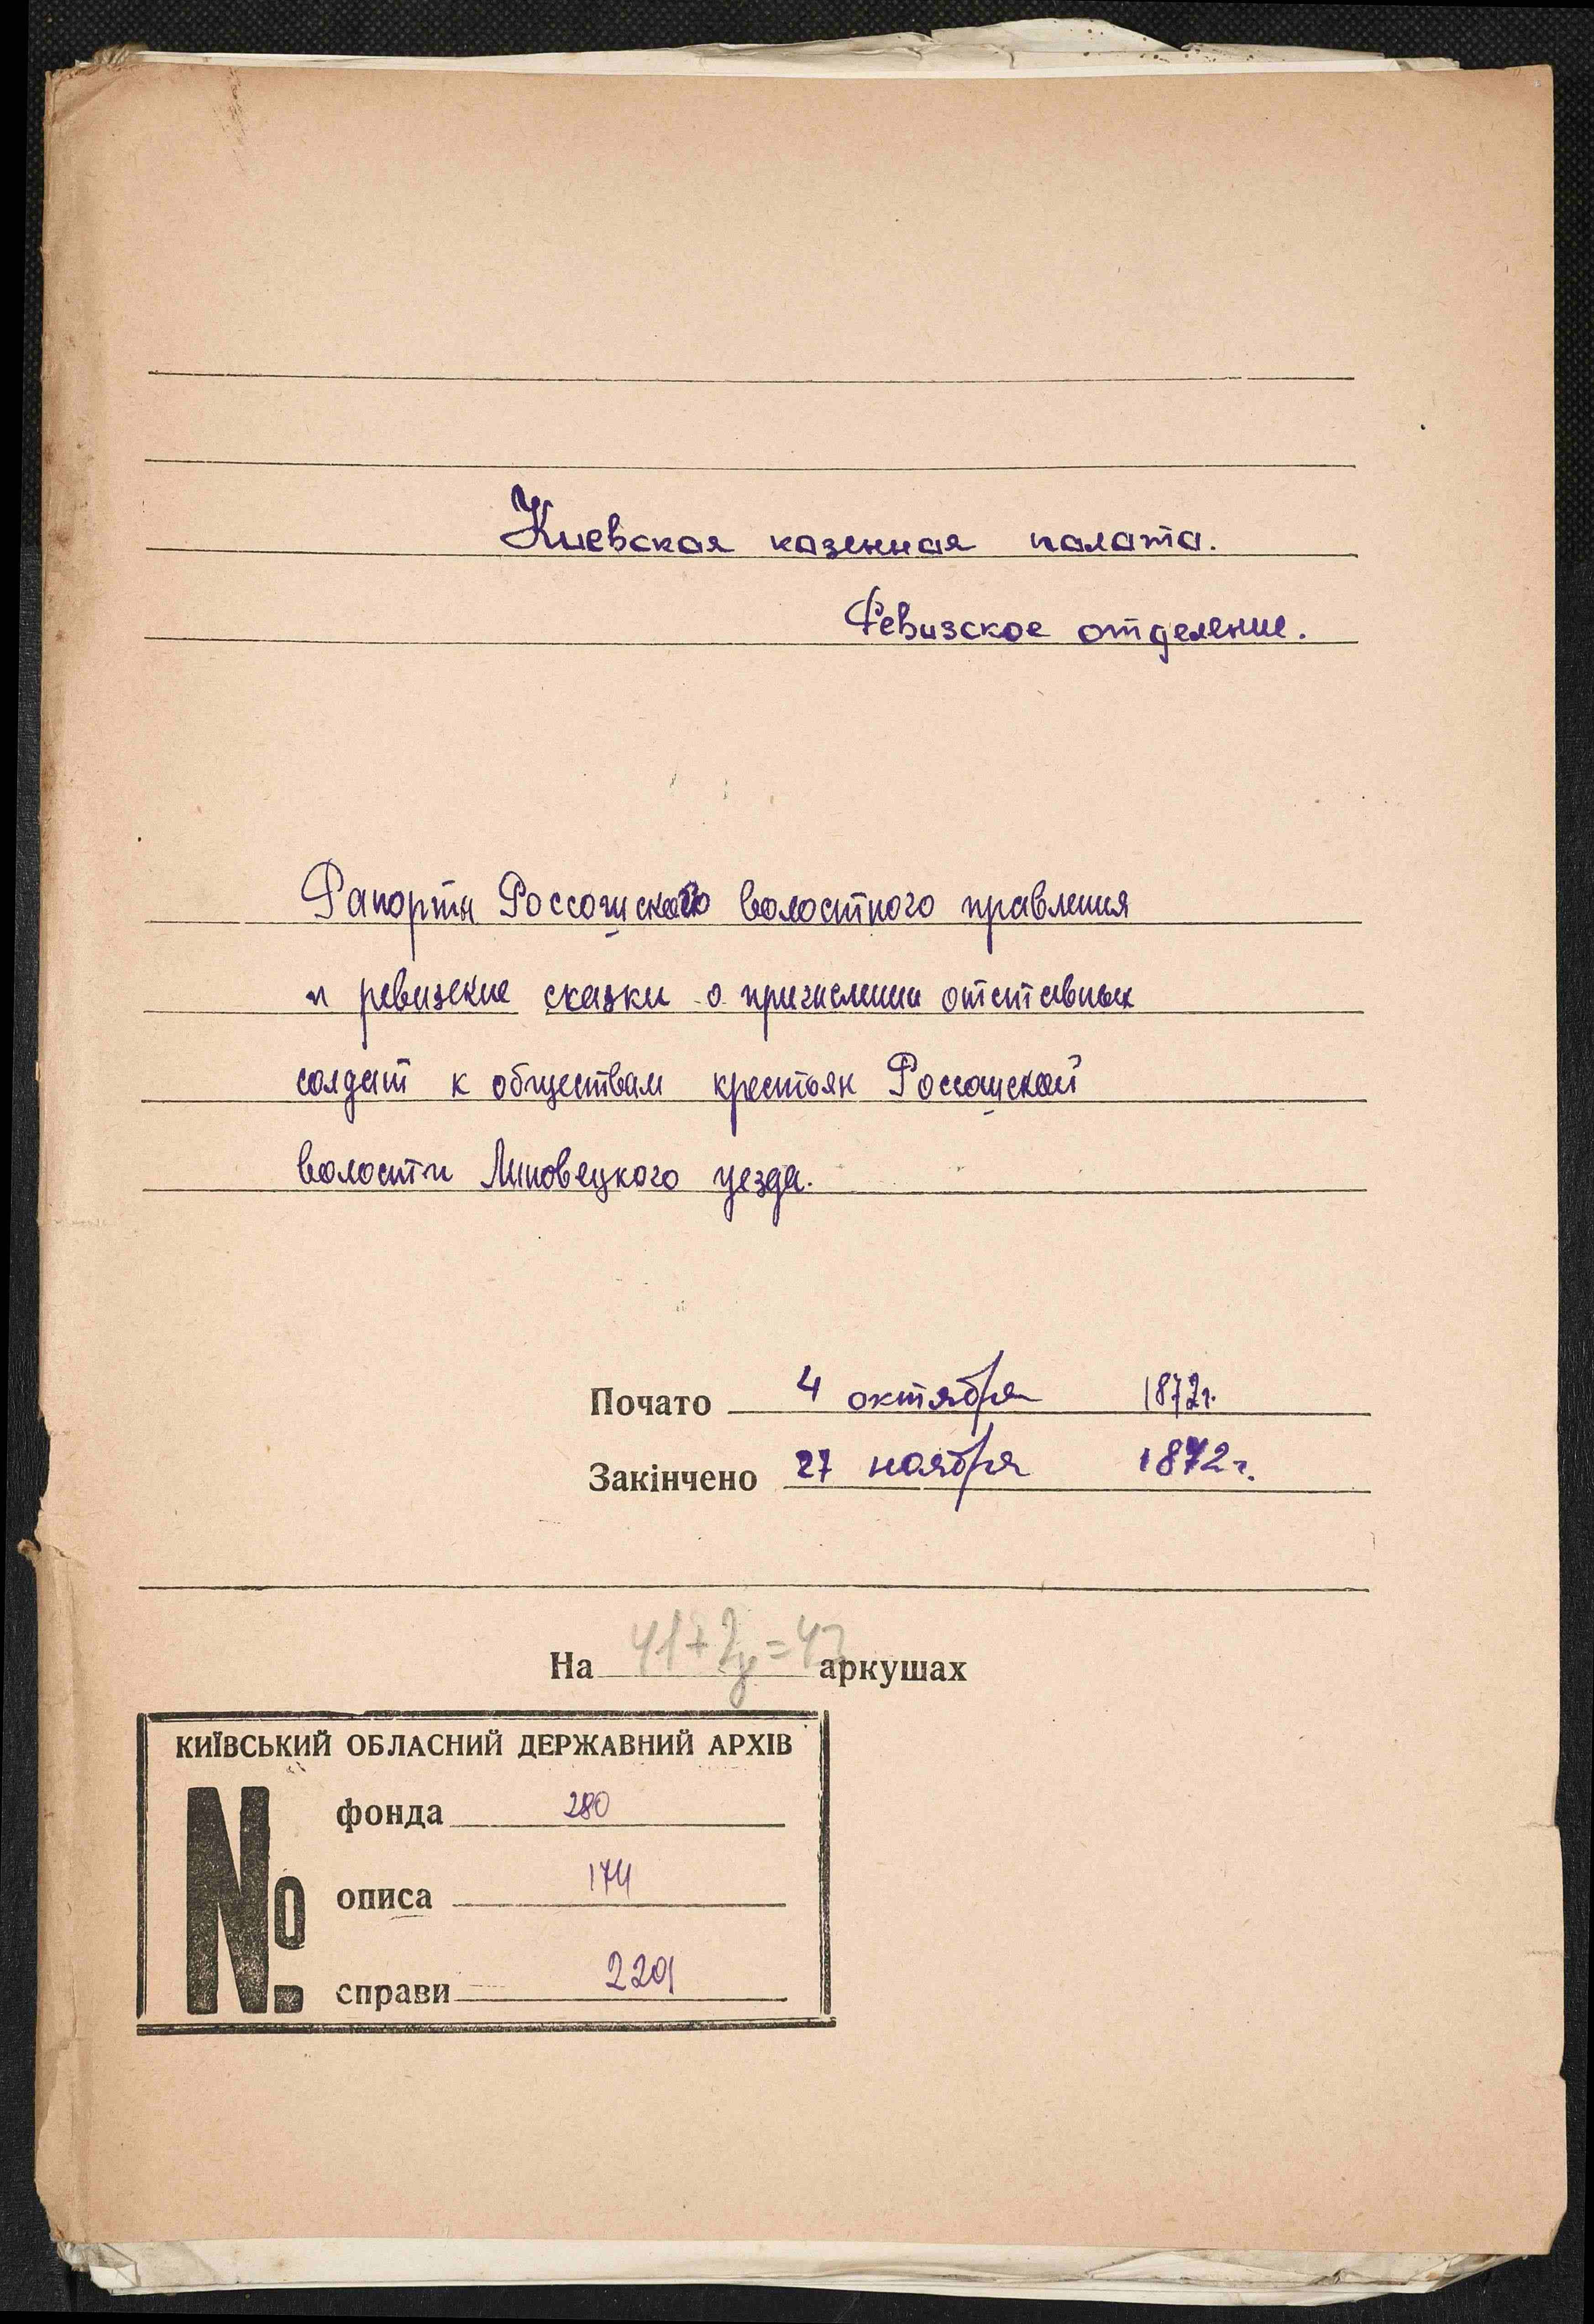 Киевская казенная палата.
Ревизское отделение.
Рапорты Россошского волостного правления
и ревизские сказки о причислении отставных
солдат к обществам крестьян Россошской
волости Липовецкого уезда.
Почато 4 октября 1872г.
Закінчено 27 ноября 1872г.
На 41+2 = 43 аркушах
КИЇВСЬКИЙ ОБЛАСНИЙ ДЕРЖАВНИЙ АРХІВ
№
фонда 280
описа 174
справи